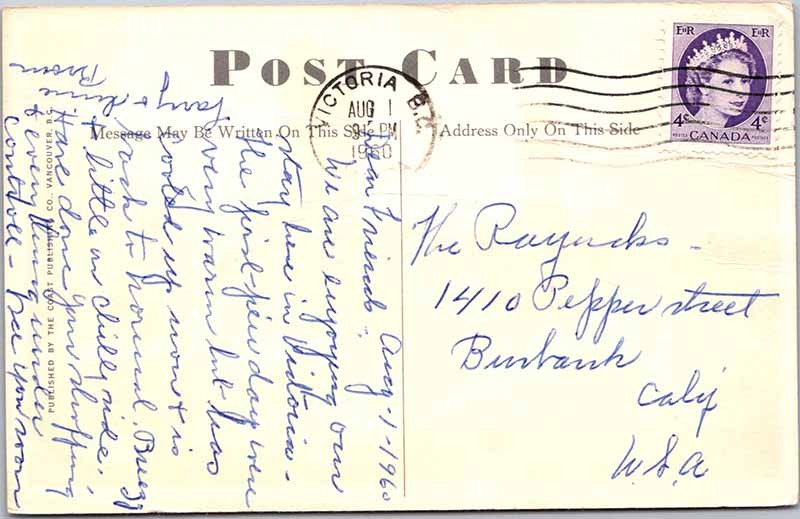 POST CARD
Message May Be Written On This Side
Address Only On This Side
VICTORIA B.C.
AUG 1
PM
1960
EIIR EIIR
4c 4c
POSTES CANADA POSTAGE
PUBLISHED BY THE COAST PUBLISHING CO., VANCOUVER, B.C.
Dear Friends, Aug-1-1960
We are enjoying our
stay here in Victoria-
the first few days were
very warm but has
cooled up now & is
back to normal. Breezy
& little on chilly side.
Have done you shopping
& everything under
control - see you soon
The
1410 Pepper street
Burbank
Calif
U.S.A